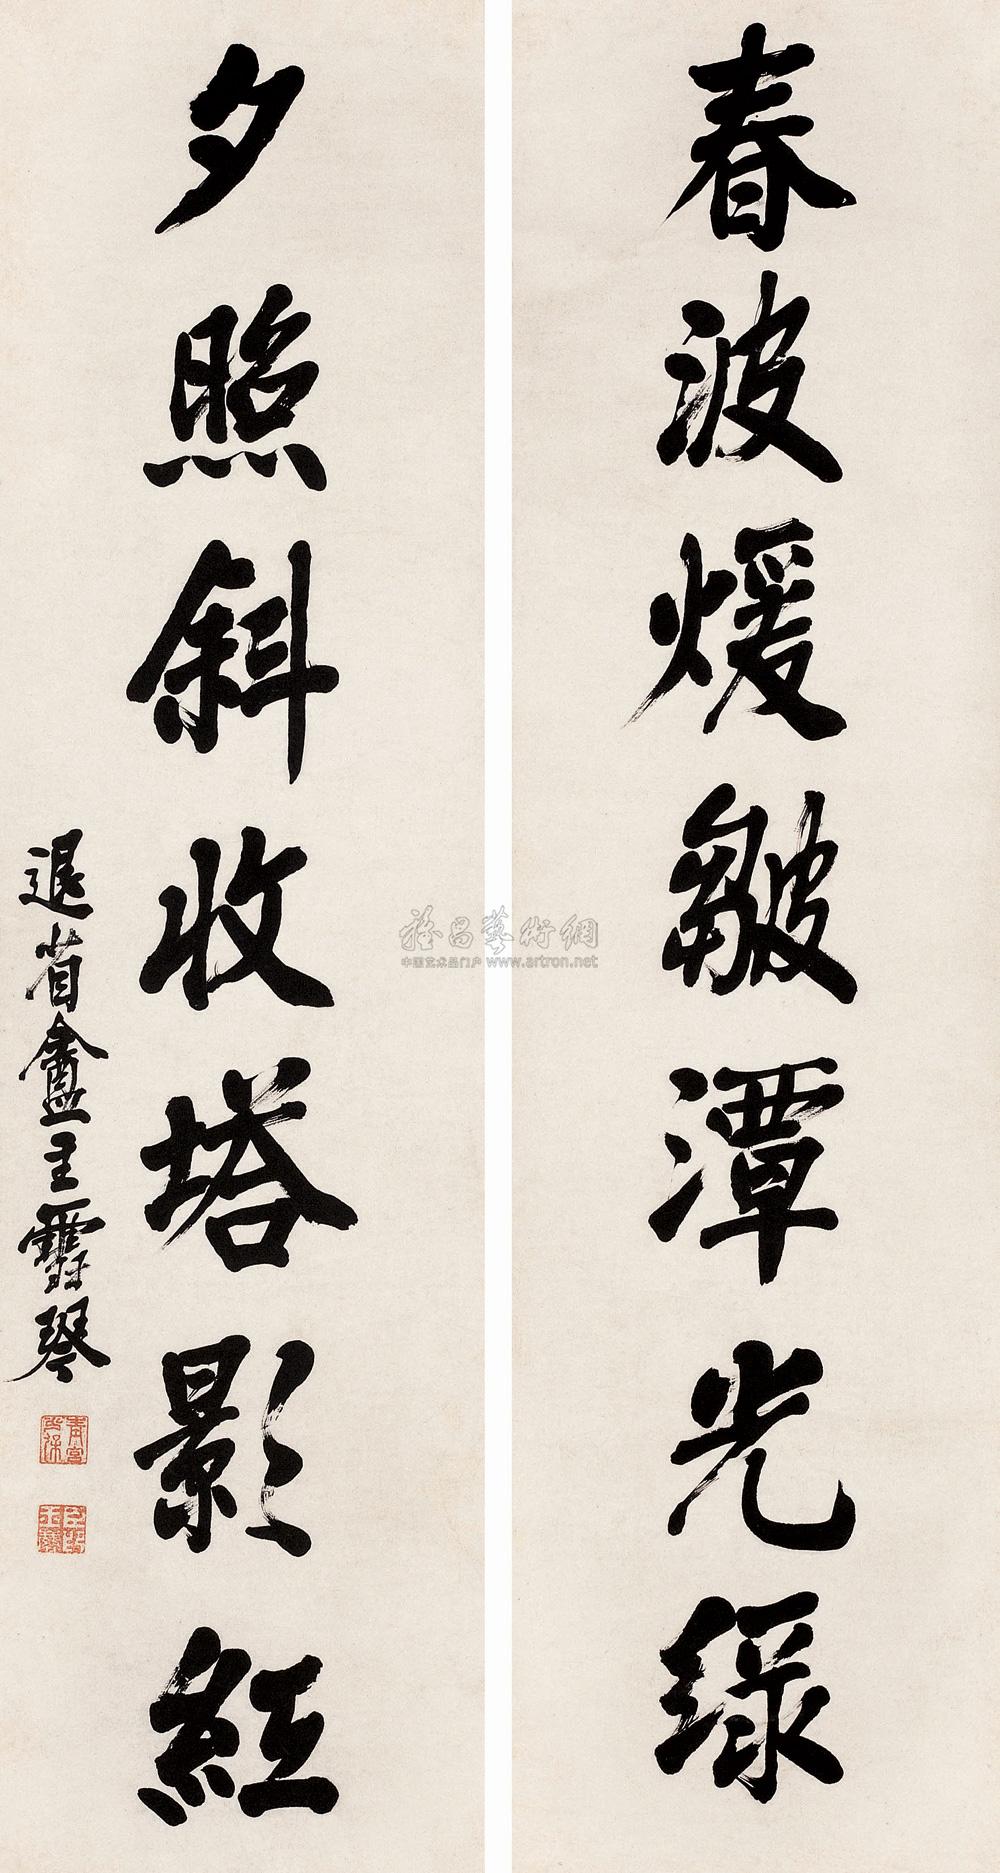 春波煖皺潭光綠
夕照斜收塔影紅
退省盦主雪琴
雅昌藝術網
中国艺术品门户 www.artron.net
青宮
臣彭玉麐